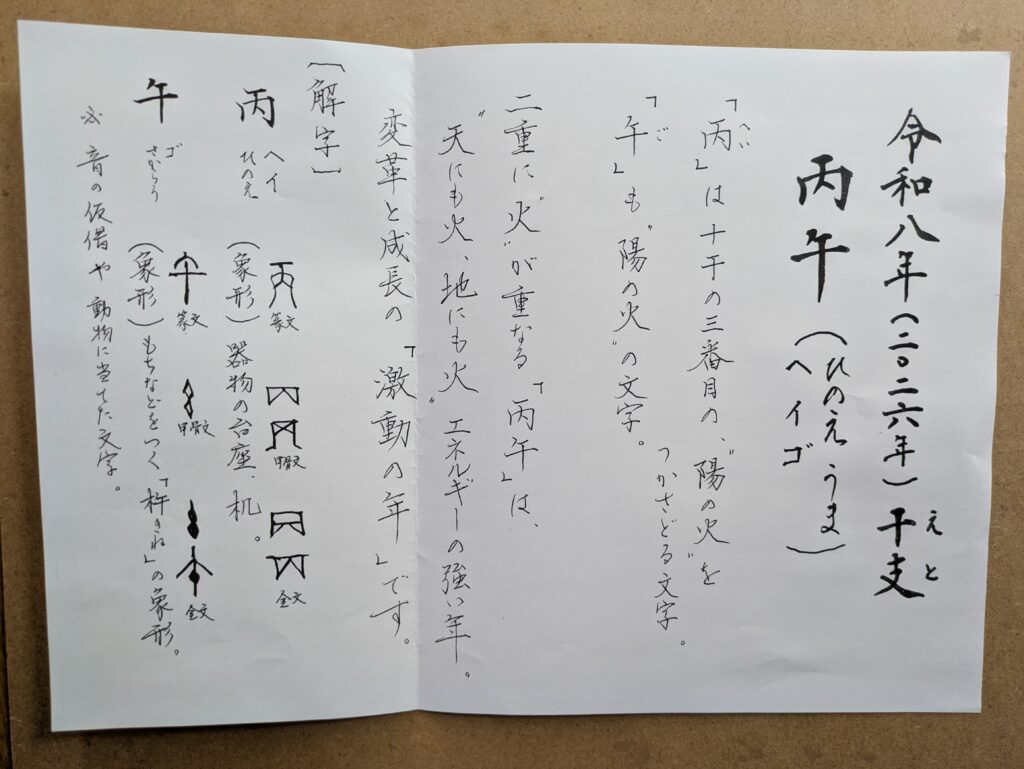 令和八年（二〇二六年）干支
えと
丙午（ひのえうま）
ヘイゴ
「丙」は十干の三番目の、〝陽の火〟を
へい
つかさどる文字。
「午」も〝陽の火〟の文字。
ご
二重に〝火〟が重なる「丙午」は、
〝天にも火、地にも火〟エネルギーの強い年。
変革と成長の「激動の年」です。
〔解字〕
丙 ヘイ ひのえ
篆文 甲骨文 金文
（象形）器物の台座、机。
午 ゴ
篆文 甲骨文 金文
（象形）もちなどをつく「杵きね」の象形。
※音の仮借や動物に当てた文字。